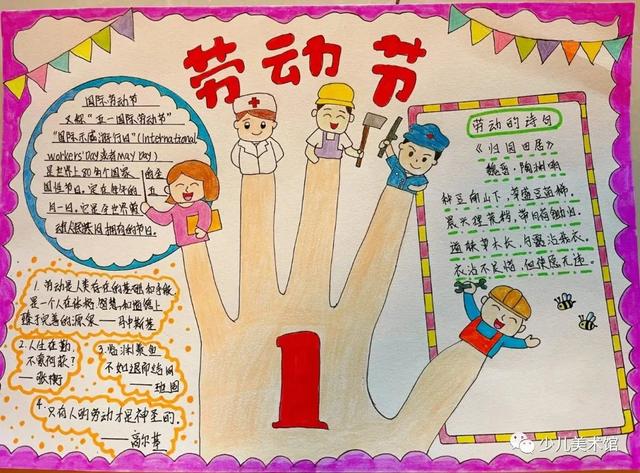 劳动节
国际劳动节
又称“五一国际劳动节”
“国际示威游行日”(International
workers'Day或者MAY DAY)
是世界上80多个国家的全
国性节日。定在每年的五
月一日。它是全世界劳
动人民共同拥有的节日。
1. 劳动是人类存在的基础和手段
是一个人在体格、智慧和道德上
臻于完善的源泉——乌申斯基
2.人生在勤,
不索何获?
—张衡
3.临渊羡鱼
不如退而结网
——班固
4.只有人的劳动才是神圣的。
——高尔基
1
劳动的诗句
《归园田居》
魏晋·陶渊明
种豆南山下,草盛豆苗稀。
晨兴理荒秽,带月荷锄归。
道狭草木长,夕露沾我衣。
衣沾不足惜,但使愿无违。
少儿美术馆